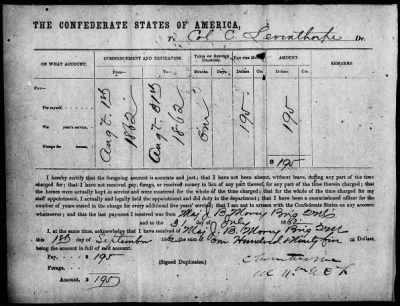 THE CONFEDERATE STATES OF AMERICA,
To Col C Leventhorpe Dr.
ON WHAT ACCOUNT. COMMENCEMENT AND EXPIRATION. TERM OF SERVICE CHARGED. PAY PER MONTH. AMOUNT. REMARKS
From— To— Months. Days. Dollars. Cts. Dollars. Cts.
PAY—
For myself, Aug't 1st 1862 Aug't 31st 1862 One 195 195
For years' service,
Forage for horses,
$ 195
I hereby certify that the foregoing account is accurate and just; that I have not been absent, without leave, during any part of the time
charged for; that I have not received pay, forage, or received money in lieu of any part thereof, for any part of the time therein charged; that
the horses were actually kept in service and were mustered for the whole of the time charged; that for the whole of the time charged for my
staff appointment, I actually and legally held the appointment and did duty in the department; that I have been a commissioned officer for the
number of years stated in the charge for every additional five years' service; that I am not in arrears with the Confederate States on any account
whatsoever; and that the last payment I received was from Maj J B Morey Brig QM
and to the 31 day of July 1862
I, at the same time, acknowledge that I have received of Maj J B Morey Brig QM
this 1st day of September 1862, the sum of One Hundred & Ninety five Dollars,
being the amount in full of said account.
Pay, - - $ 195
Forage, - -
Amount, - $ 195
(Signed Duplicates.)
C Leventhorpe
Col 11th